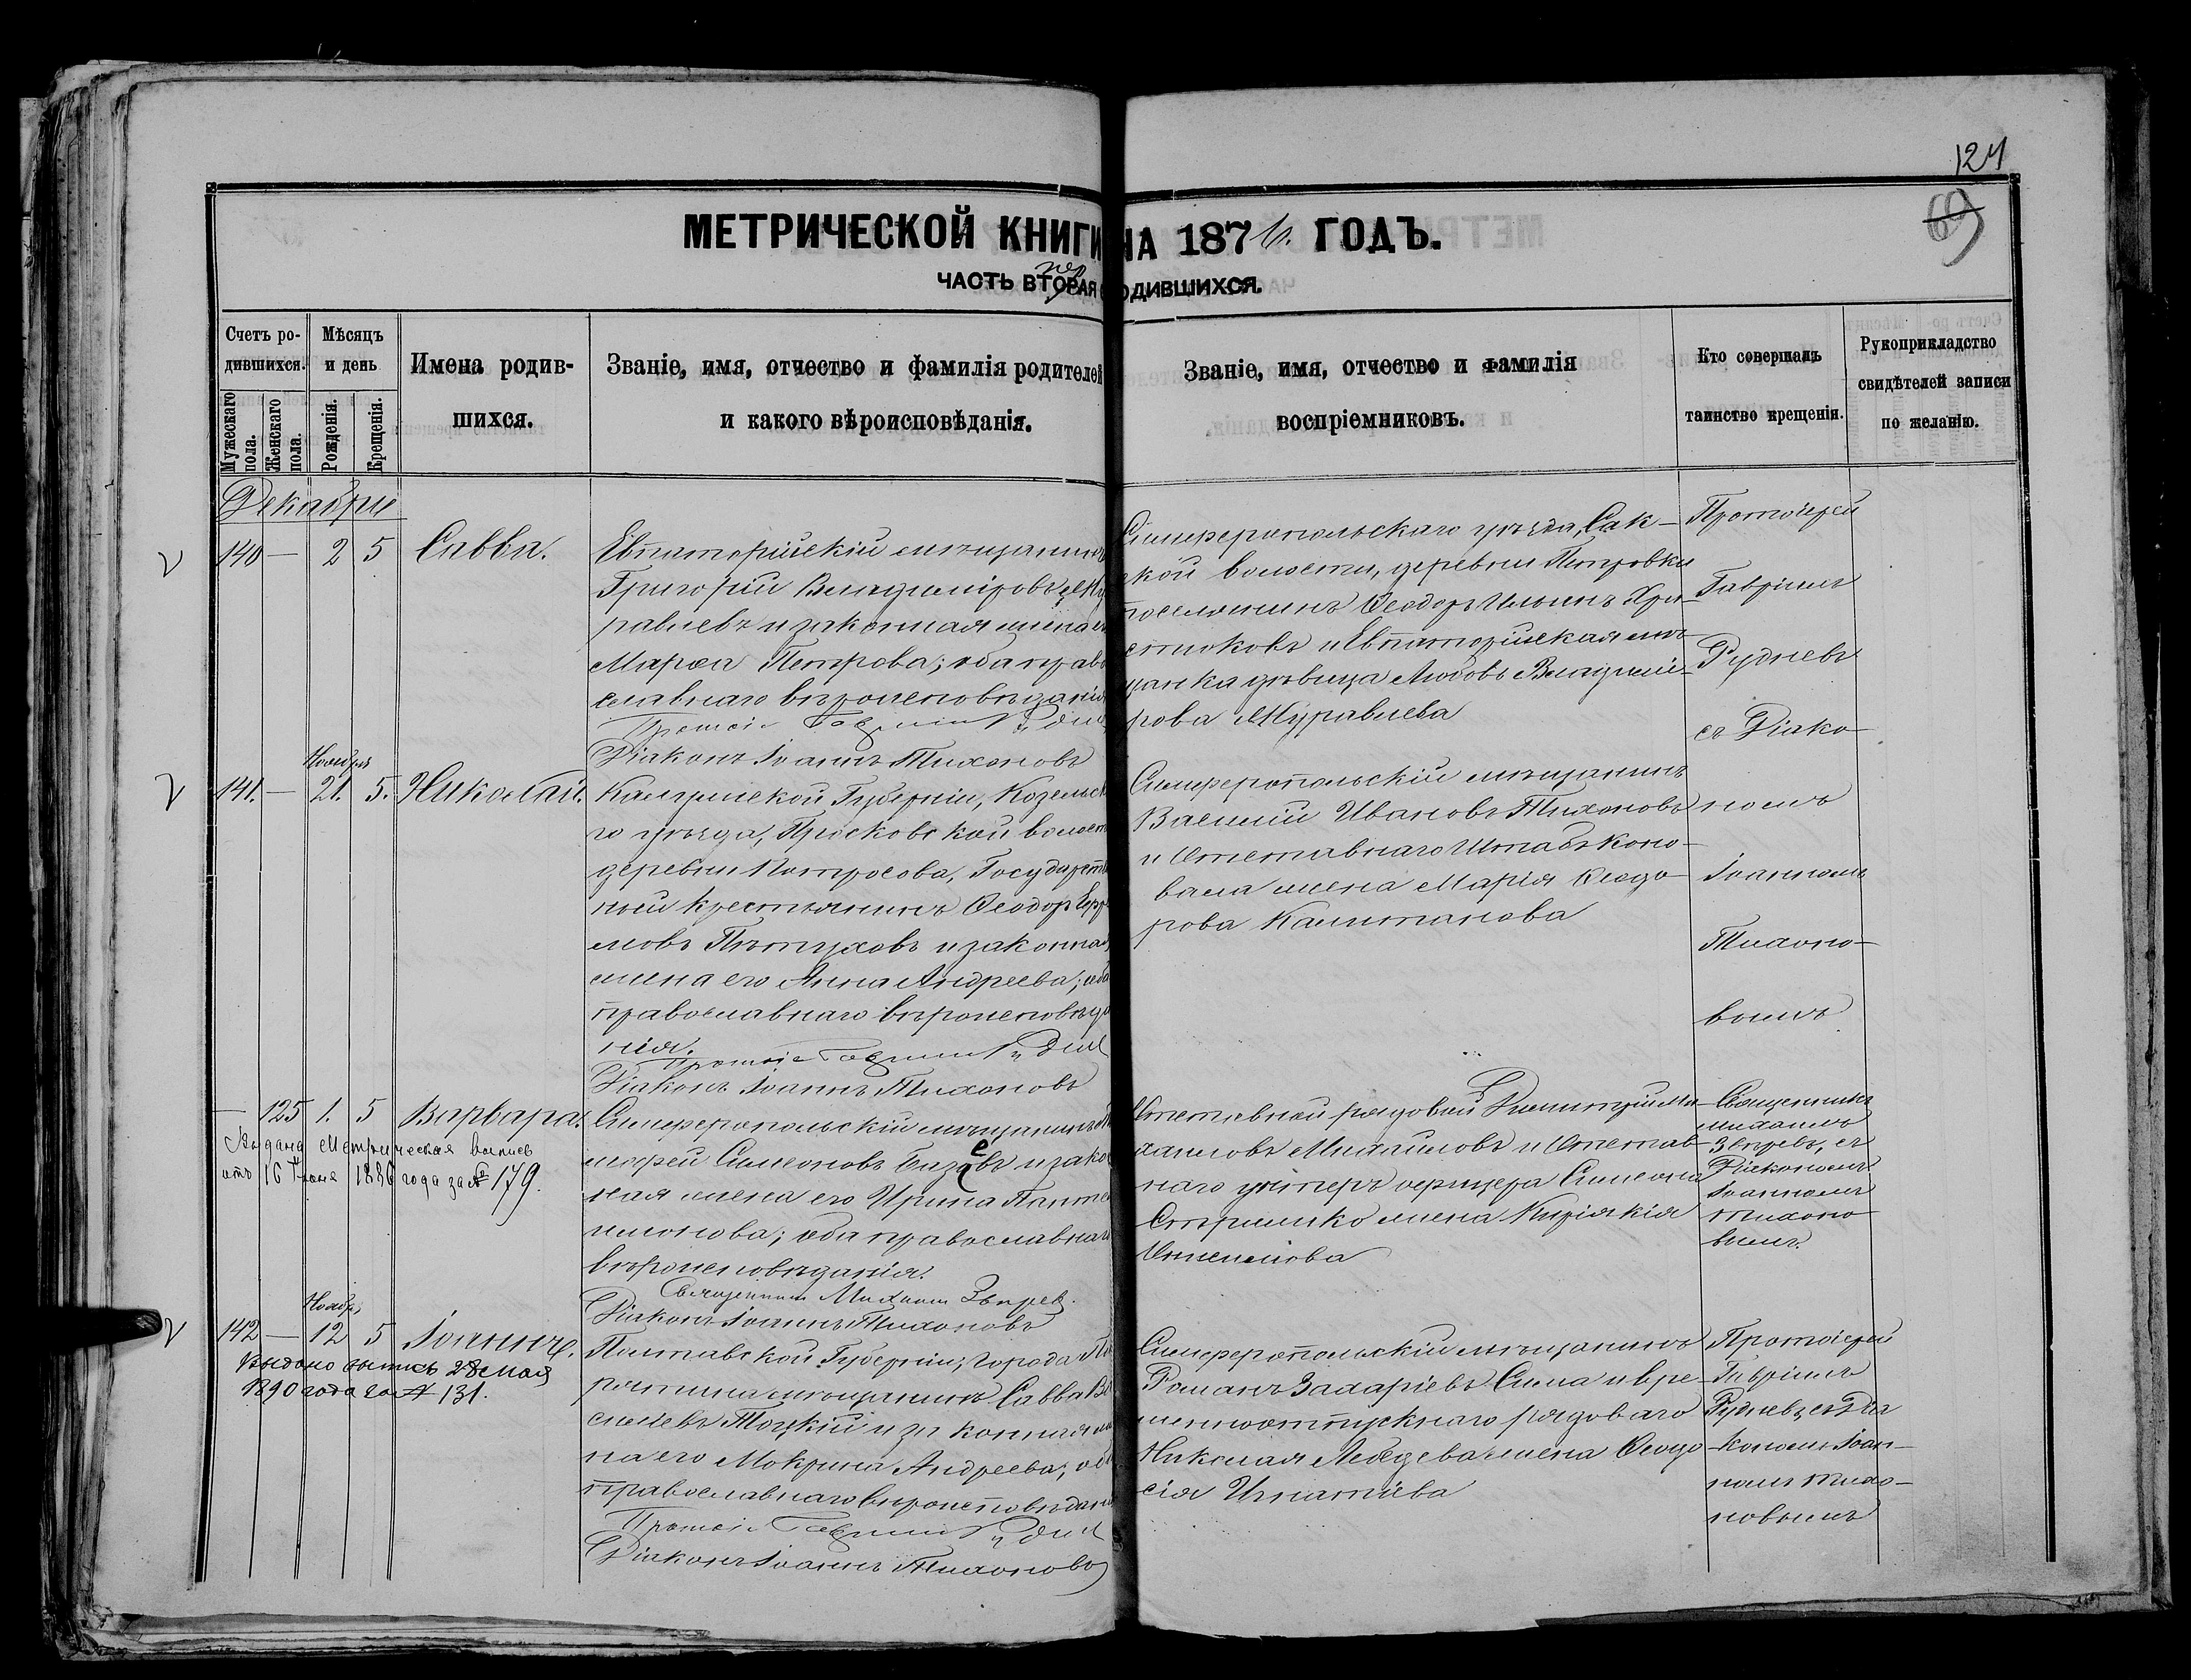 124
69
МЕТРИЧЕСКОЙ КНИГИ НА 1876. ГОДЪ.
ЧАСТЬ ВТОРАЯ
пер
РОДИВШИХСЯ.
Счетъ ро-
дившихся.
Мужескаго пола.
Женскаго пола.
Мѣсяцъ
и день
Рожденія.
Крещенія.
Имена родив-
шихся.
Званіе, имя, отчество и фамилія родителей
и какого вѣроисповѣданія.
Званіе, имя, отчество и фамилія
воспріемниковъ.
Кто совершалъ
таинство крещенія.
Рукоприкладство
свидѣтелей записи
по желанію.
Декабрь
140 — 2 5 Савва.
Евпаторійскій мѣщанинъ
Григорій Владиміровъ Му
равлевъ и законная жена е
Марѳа Петрова; оба прав
славнаго вѣроисповѣданія
Протоіе Гавріилъ Рудне
Діаконъ Іоаннъ Тихоновъ
Симферопольскаго уѣзда, Сак-
ской волости, деревни Петровки
поселянинъ Ѳеодоръ Ильинъ Хри-
стюковъ и Евпаторійская мѣ-
щанка дѣвица Любовь Владимі-
рова Муравлева
Протоіерей
Гавріилъ
Рудневъ
съ Діако-
номъ
Іоанномъ
Тихоно-
вымъ
Ноября
141. — 21. 5. Николай.
Калужской Губерніи, Козельск
го уѣзда, волост
деревни Государств
ный крестьянинъ Ѳеодоръ Ефр
мовъ Пѣтуховъ и законная
жена его Анна Андреева; оба
православнаго вѣроисповѣда
нія.
Протоіе Гавріилъ Рудне
Діаконъ Іоаннъ Тихоновъ
Симферопольскій мѣщанинъ
Василій Ивановъ Тихоновъ
и Отставнаго Штабъ коно-
вала жена Марія Ѳеодо-
рова Капитанова
— 125 1. 5 Варвара.
Выдана Метрическая выпись
отъ 16 Іюня 1886 года за № 179.
Симферопольскій мѣщанинъ
Симеоновъ и зако
ная жена его Ирина Панте
лимонова; оба православнаго
вѣроисповѣданія.
Священникъ Михаилъ Звѣрев.
Діаконъ Іоаннъ Тихоновъ
Отставной рядовой Димитрій Ми-
хаиловъ Михаиловъ и Отстав-
наго унтеръ офицера Симеона
жена Киріякія
Священникъ
Михаилъ
Звѣревъ, съ
Діакономъ
Іоанномъ
Тихоно-
вымъ.
Ноябр
142 — 12 5 Іоаннъ.
Выдана выпись 28 мая
1890 года за № 131.
Полтавской Губерніи, города
мѣщанинъ Савва Ва
сильевъ и законная же
на его Мокрина Андреева; об
православнаго вѣроисповѣдан
Протоіе Гавріилъ Рудне
Діаконъ Іоаннъ Тихоновъ
Симферопольскій мѣщанинъ
Романъ Захаріевъ и вре-
менноотпускнаго рядоваго
Николая Лебедева жена Ѳеодо
сія Игнатіева
Протоіерей
Гавріилъ
Рудневъ, съ Діа
кономъ Іоан-
номъ Тихо-
новымъ